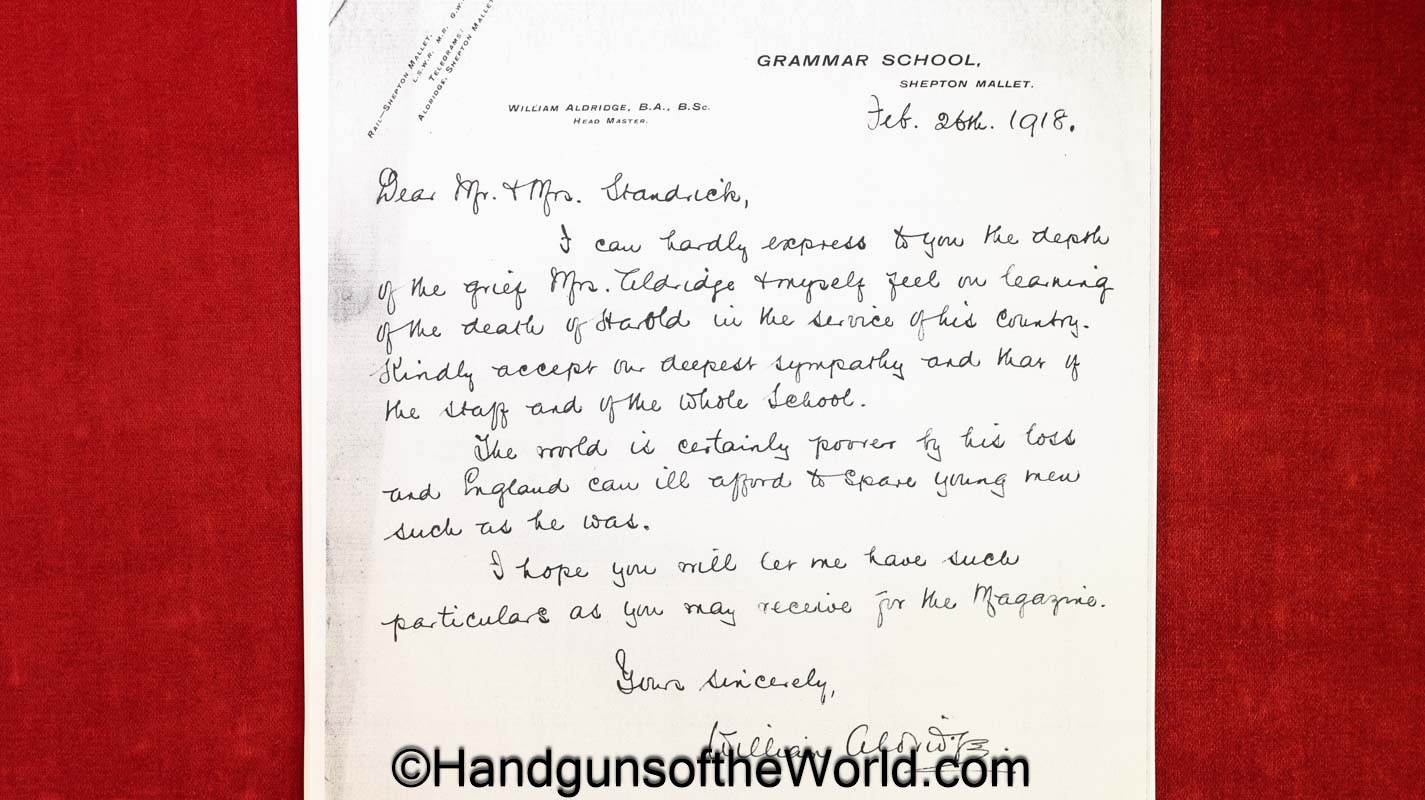 RAIL—SHEPTON MALLET,
L.S.W.R. M.R. G.W.
TELEGRAMS:
ALDRIDGE, SHEPTON MALLET
GRAMMAR SCHOOL,
SHEPTON MALLET.
WILLIAM ALDRIDGE, B.A., B.Sc.
HEAD MASTER.
Feb. 26th. 1918.
Dear Mr. & Mrs. Standrick,
I can hardly express to you the depth
of the grief Mrs. Aldridge & myself feel on learning
of the death of Harold in the service of his Country.
Kindly accept our deepest sympathy and that of
the staff and of the whole School.
The world is certainly poorer by his loss
and England can ill afford to spare young men
such as he was.
I hope you will let me have such
particulars as you may receive for the Magazine.
Yours sincerely,
William Aldridge.
©HandgunsoftheWorld.com